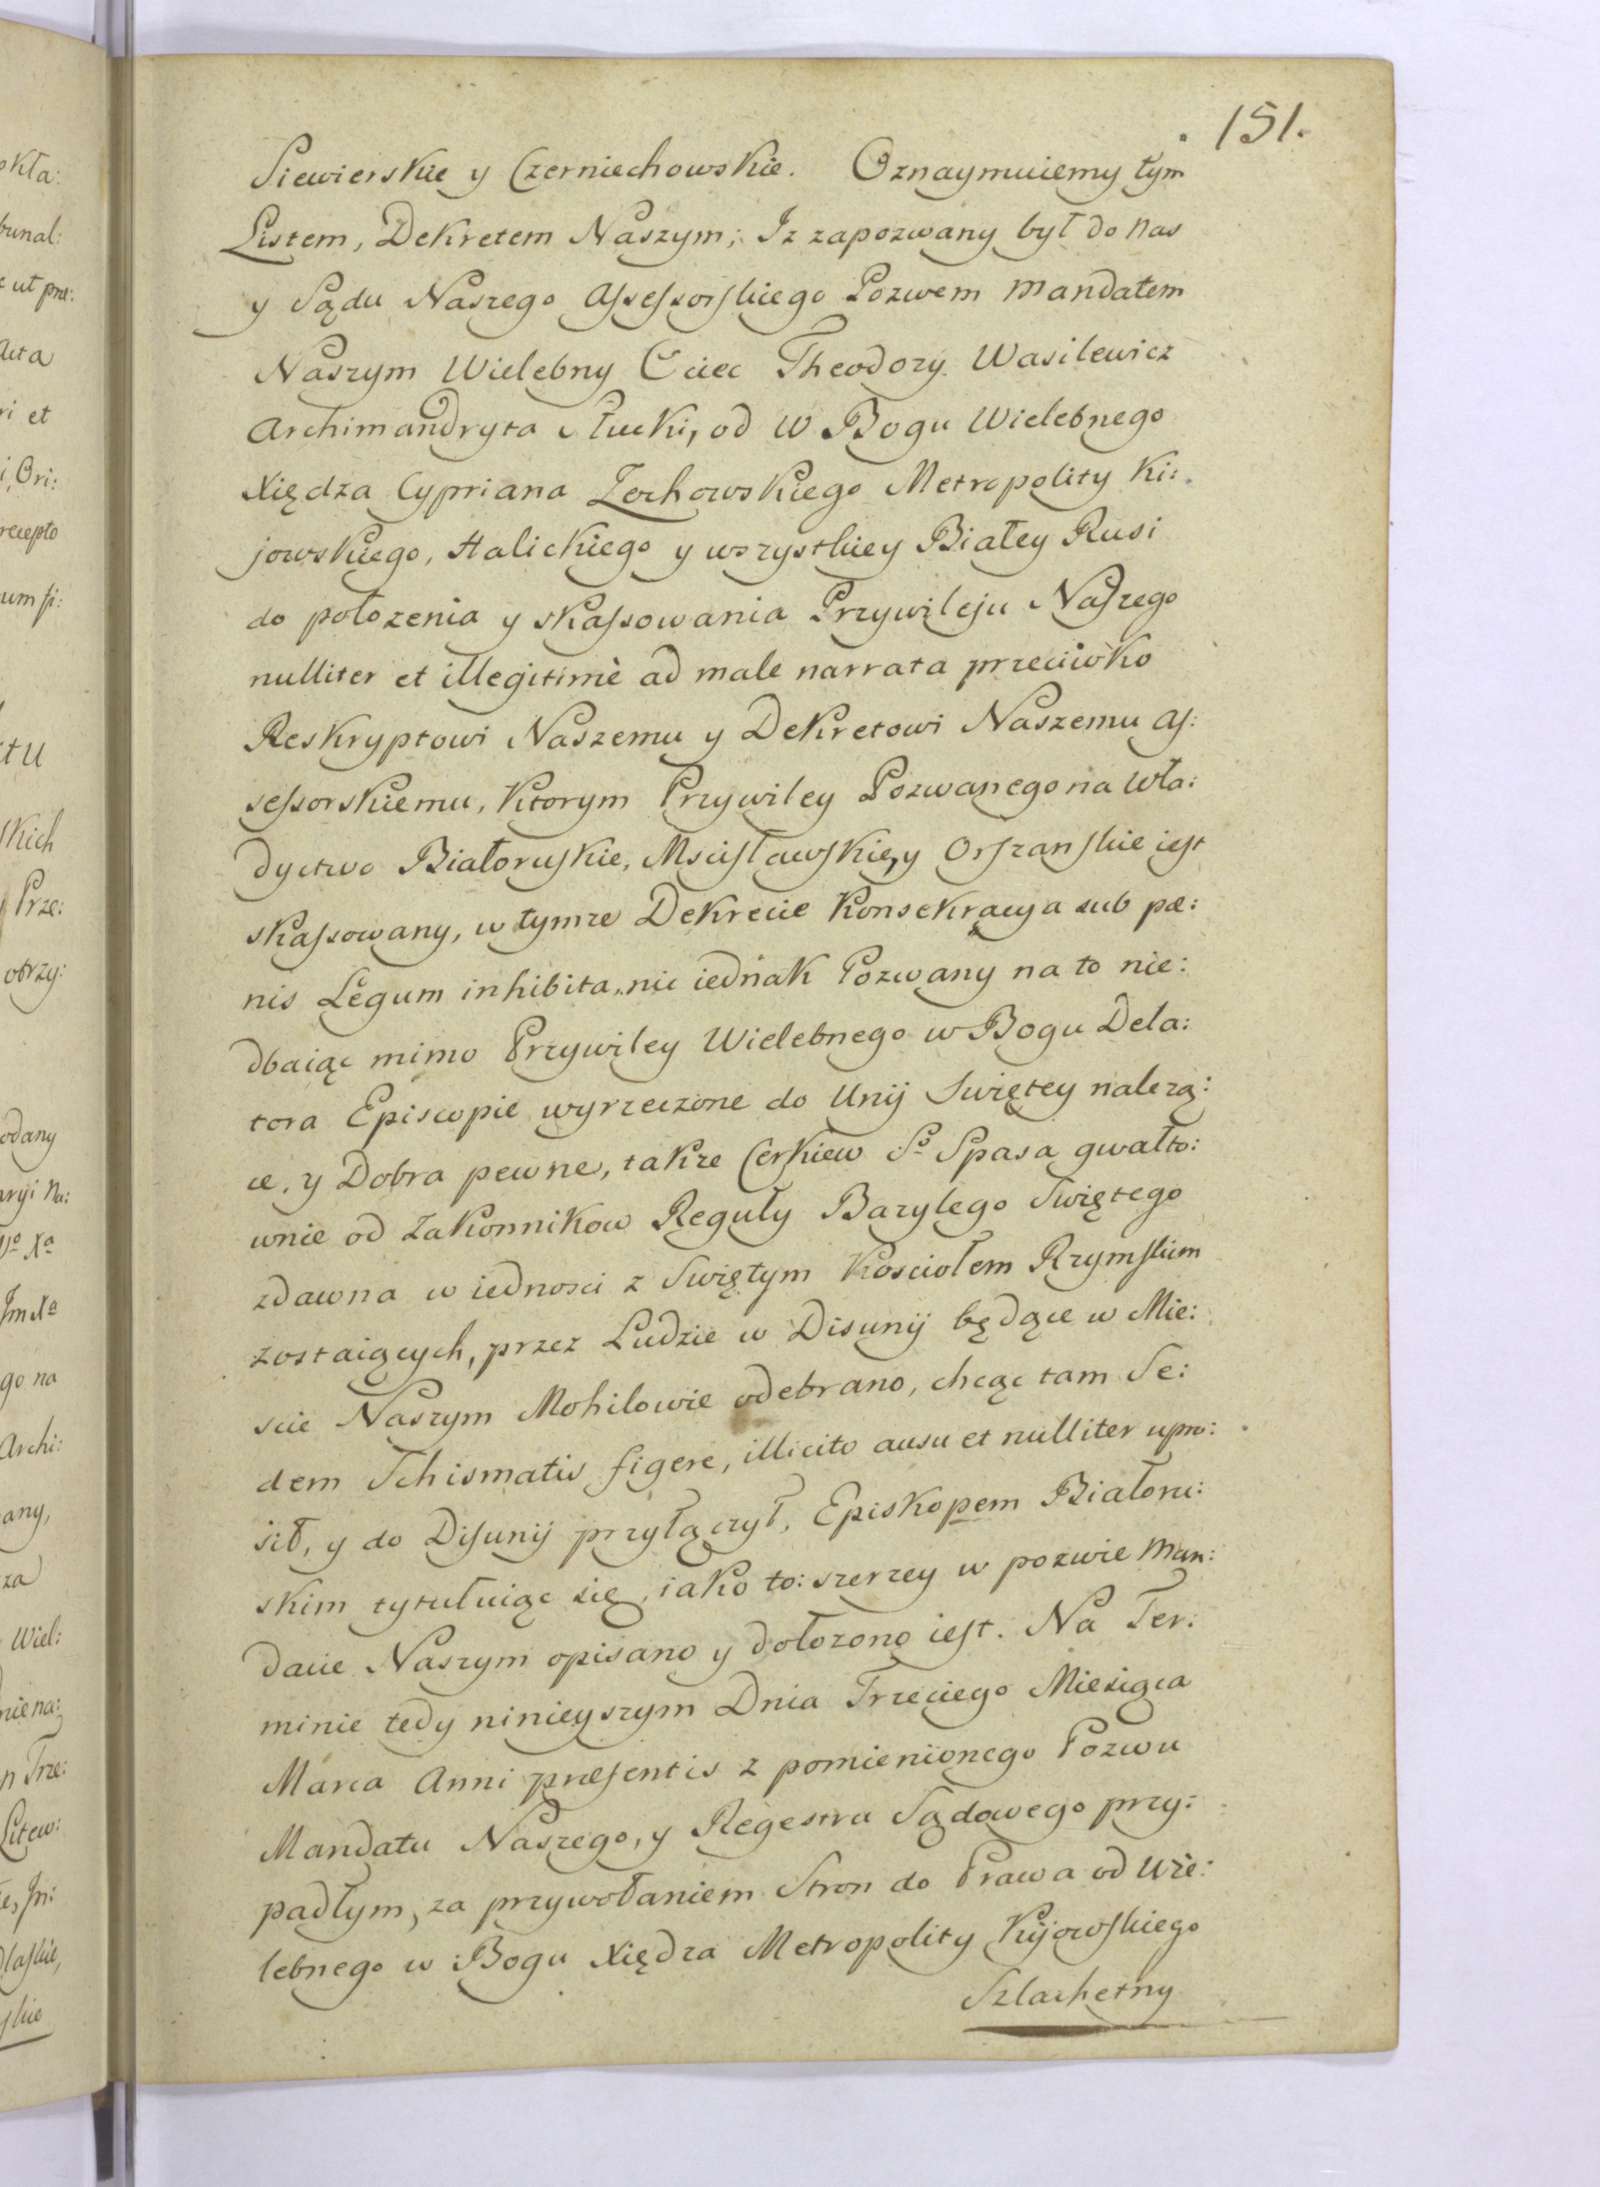 . 151.
Siewierskie y Czerniechowskie. Oznaymuiemy tym
Listem, Dekretem Naszym; Iz zapozwany był do Nas
y Sądu Naszego Assessorskiego Pozwem Mandatem
Naszym Wielebny Ociec Theodozy Wasilewicz
Archimandryta Słucki, od W Bogu Wielebnego
Xiędza Cypriana Zochowskiego Metropolity Ki:
jowskiego, Halickiego y wszystkiey Białey Rusi
do połozenia y skassowania Przywileju Naszego
nulliter et illegitimè ad male narrata przeciwko
Reskryptowi Naszemu y Dekretowi Naszemu As:
sessorskiemu, Ktorym Przywiley Pozwanego na Wła:
dyctwo Białoruskie, Mscisławskie, y Orszanskie iest
skassowany, w tymze Dekrecie Konsekracya sub pæ:
nis Legum inhibita, nic iednak Pozwany na to nie:
dbaiąc mimo Przywiley Wielebnego w Bogu Dela:
tora Episcopie wyrzeczone do Unij Swiętey nalezą:
ce, y Dobra pewne, takze Cerkiew So Spasa gwałto:
wnie od Zakonnikow Reguły Bazylego Swiętego
zdawna w iednosci z Swiętym Kosciołem Rzymskim
zostaiących, przez Ludzie w Disunij będące w Mie:
scie Naszym Mohilowie odebrano, chcąc tam Se:
dem Schismatis figere, illicito ausu et nulliter upro:
sił, y do Disunij przyłączył, Episkopem Białoru:
skim tytułuiąc się, iako to: szerzey w pozwie Man:
dacie Naszym opisano y dołozono iest. Na Ter:
minie tedy ninieyszym Dnia Trzeciego Miesiąca
Marca Anni præsentis z pomienionego Pozwu
Mandatu Naszego, y Regestru Sądowego przy:
padłym, za przywołaniem Stron do Prawa od Wie:
lebnego w Bogu Xiędza Metropolity Kijowskiego
Szlachetny
okła:
bunal:
ut præ:
Acta
ri et
i, Ori:
recepto
um si:
tu
skich
Prze:
otrzy:
odany
aryi Na:
Xa
Jm Xa
go na
Archi:
any,
za
Wiel:
nie na:
n Trze:
Litew:
Jn:
dlaskie,
skie